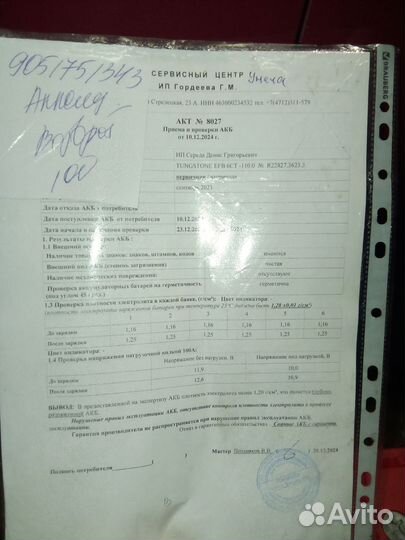 905/751343
СЕРВИСНЫЙ ЦЕНТР Унеча
ИП Гордеева Г.М.
Стрелецкая, 23 А ИНН 463000234532 тел. +7(4712)311-579
АКТ № 8027
Приема и проверки АКБ
от 10.12.2024 г.
ИП Середа Денис Григорьевич
TUNGSTONE EFB 6СТ -110.0 № R22827.3623.3
сентябрь 2023
Дата отказа АКБ у потребителя
Дата поступления АКБ от потребителя 10.12.2024
Дата начала и окончания проверки 23.12.2024
1. Результаты проверки АКБ :
1.1 Внешний осмотр
Наличие товарных знаков: знаков, штампов, кодов имеются
Внешний вид АКБ (степень загрязнения) чистая
Наличие механических повреждений: отсутствуют
Проверка аккумуляторных батарей на герметичность герметична
(под углом 45 град.)
1.3 Проверка плотности электролита в каждой банке, (г/см³): Цвет индикатора:
(плотность электролита заряженной батареи при температуре 25°С должна быть 1,28±0,01 г/см³)
1 2 3 4 5 6
До зарядки 1,16 1,16 1,16 1,16 1,16 1,16
После зарядки 1,25 1,25 1,25 1,25 1,25 1,25
Цвет индикатора: -
1.4 Проверка напряжения нагрузочной вилкой 100А:
Напряжение без нагрузки, В Напряжение под нагрузкой, В
До зарядки 11,9 10,0
После зарядки 12,6 10,9
ВЫВОД: В предоставленной на экспертизу АКБ плотность электролита менее 1,20 г/см³, что является глубоко
разряженной АКБ.
Нарушение правил эксплуатации АКБ, отсутствие контроля плотности электролита в процессе
эксплуатации.
Гарантия производителя не распространяется при нарушении правил эксплуатации АКБ.
Отказ в гарантийных обязательствах. Снятие АКБ с гарантии.
Мастер Потдыков В.В. ( ) 26.12.2024
Подпись потребителя ( )
BRAUBERG
Avito